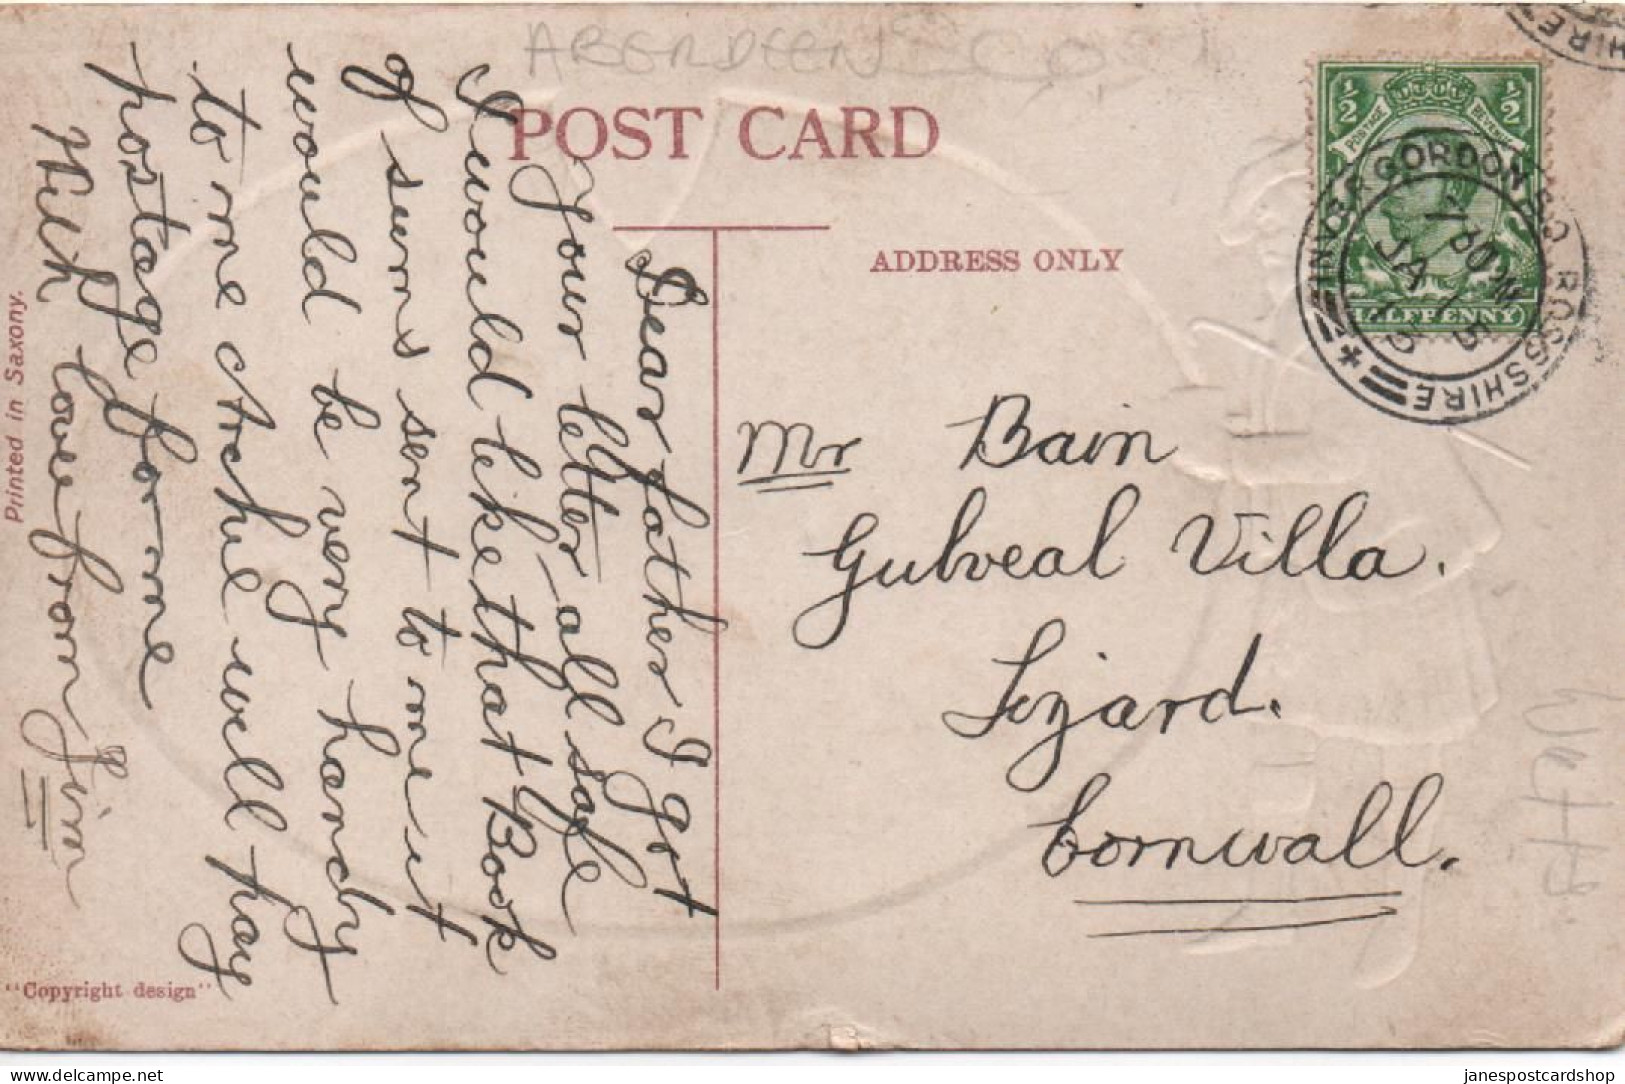 ABERDEEN
POST CARD
ADDRESS ONLY
Dear father I got
your letter all safe
I would like that Book
of sums sent to me it
would be very handy
to me Archie well pay
postage for me
With love from Jim
Mr Bain
Gulveal Villa.
Lizard.
Cornwall.
½ ½
POSTAGE REVENUE
HALFPENNY
INVERGORDON S.O. ROSS-SHIRE
JA 1
15
SHIRE
Printed in Saxony.
"Copyright design"
janespostcardshop
delcampe.net